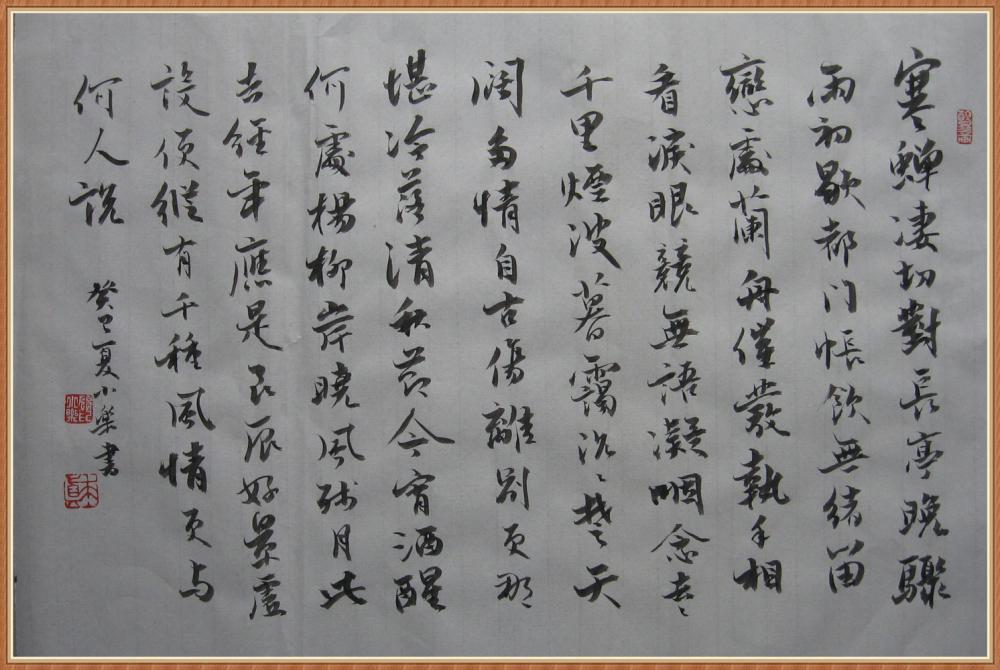 寒蟬淒切對長亭晚驟
雨初歇都門帳飲無緒留
戀處蘭舟催發執手相
看淚眼競無語凝咽念去々
千里煙波暮靄沉々楚天
闊多情自古傷離別更那
堪冷落清秋節今宵酒醒
何處楊柳岸曉風殘月此
去經年應是良辰好景虛
設便縱有千種風情更与
何人說
癸巳夏小樂書